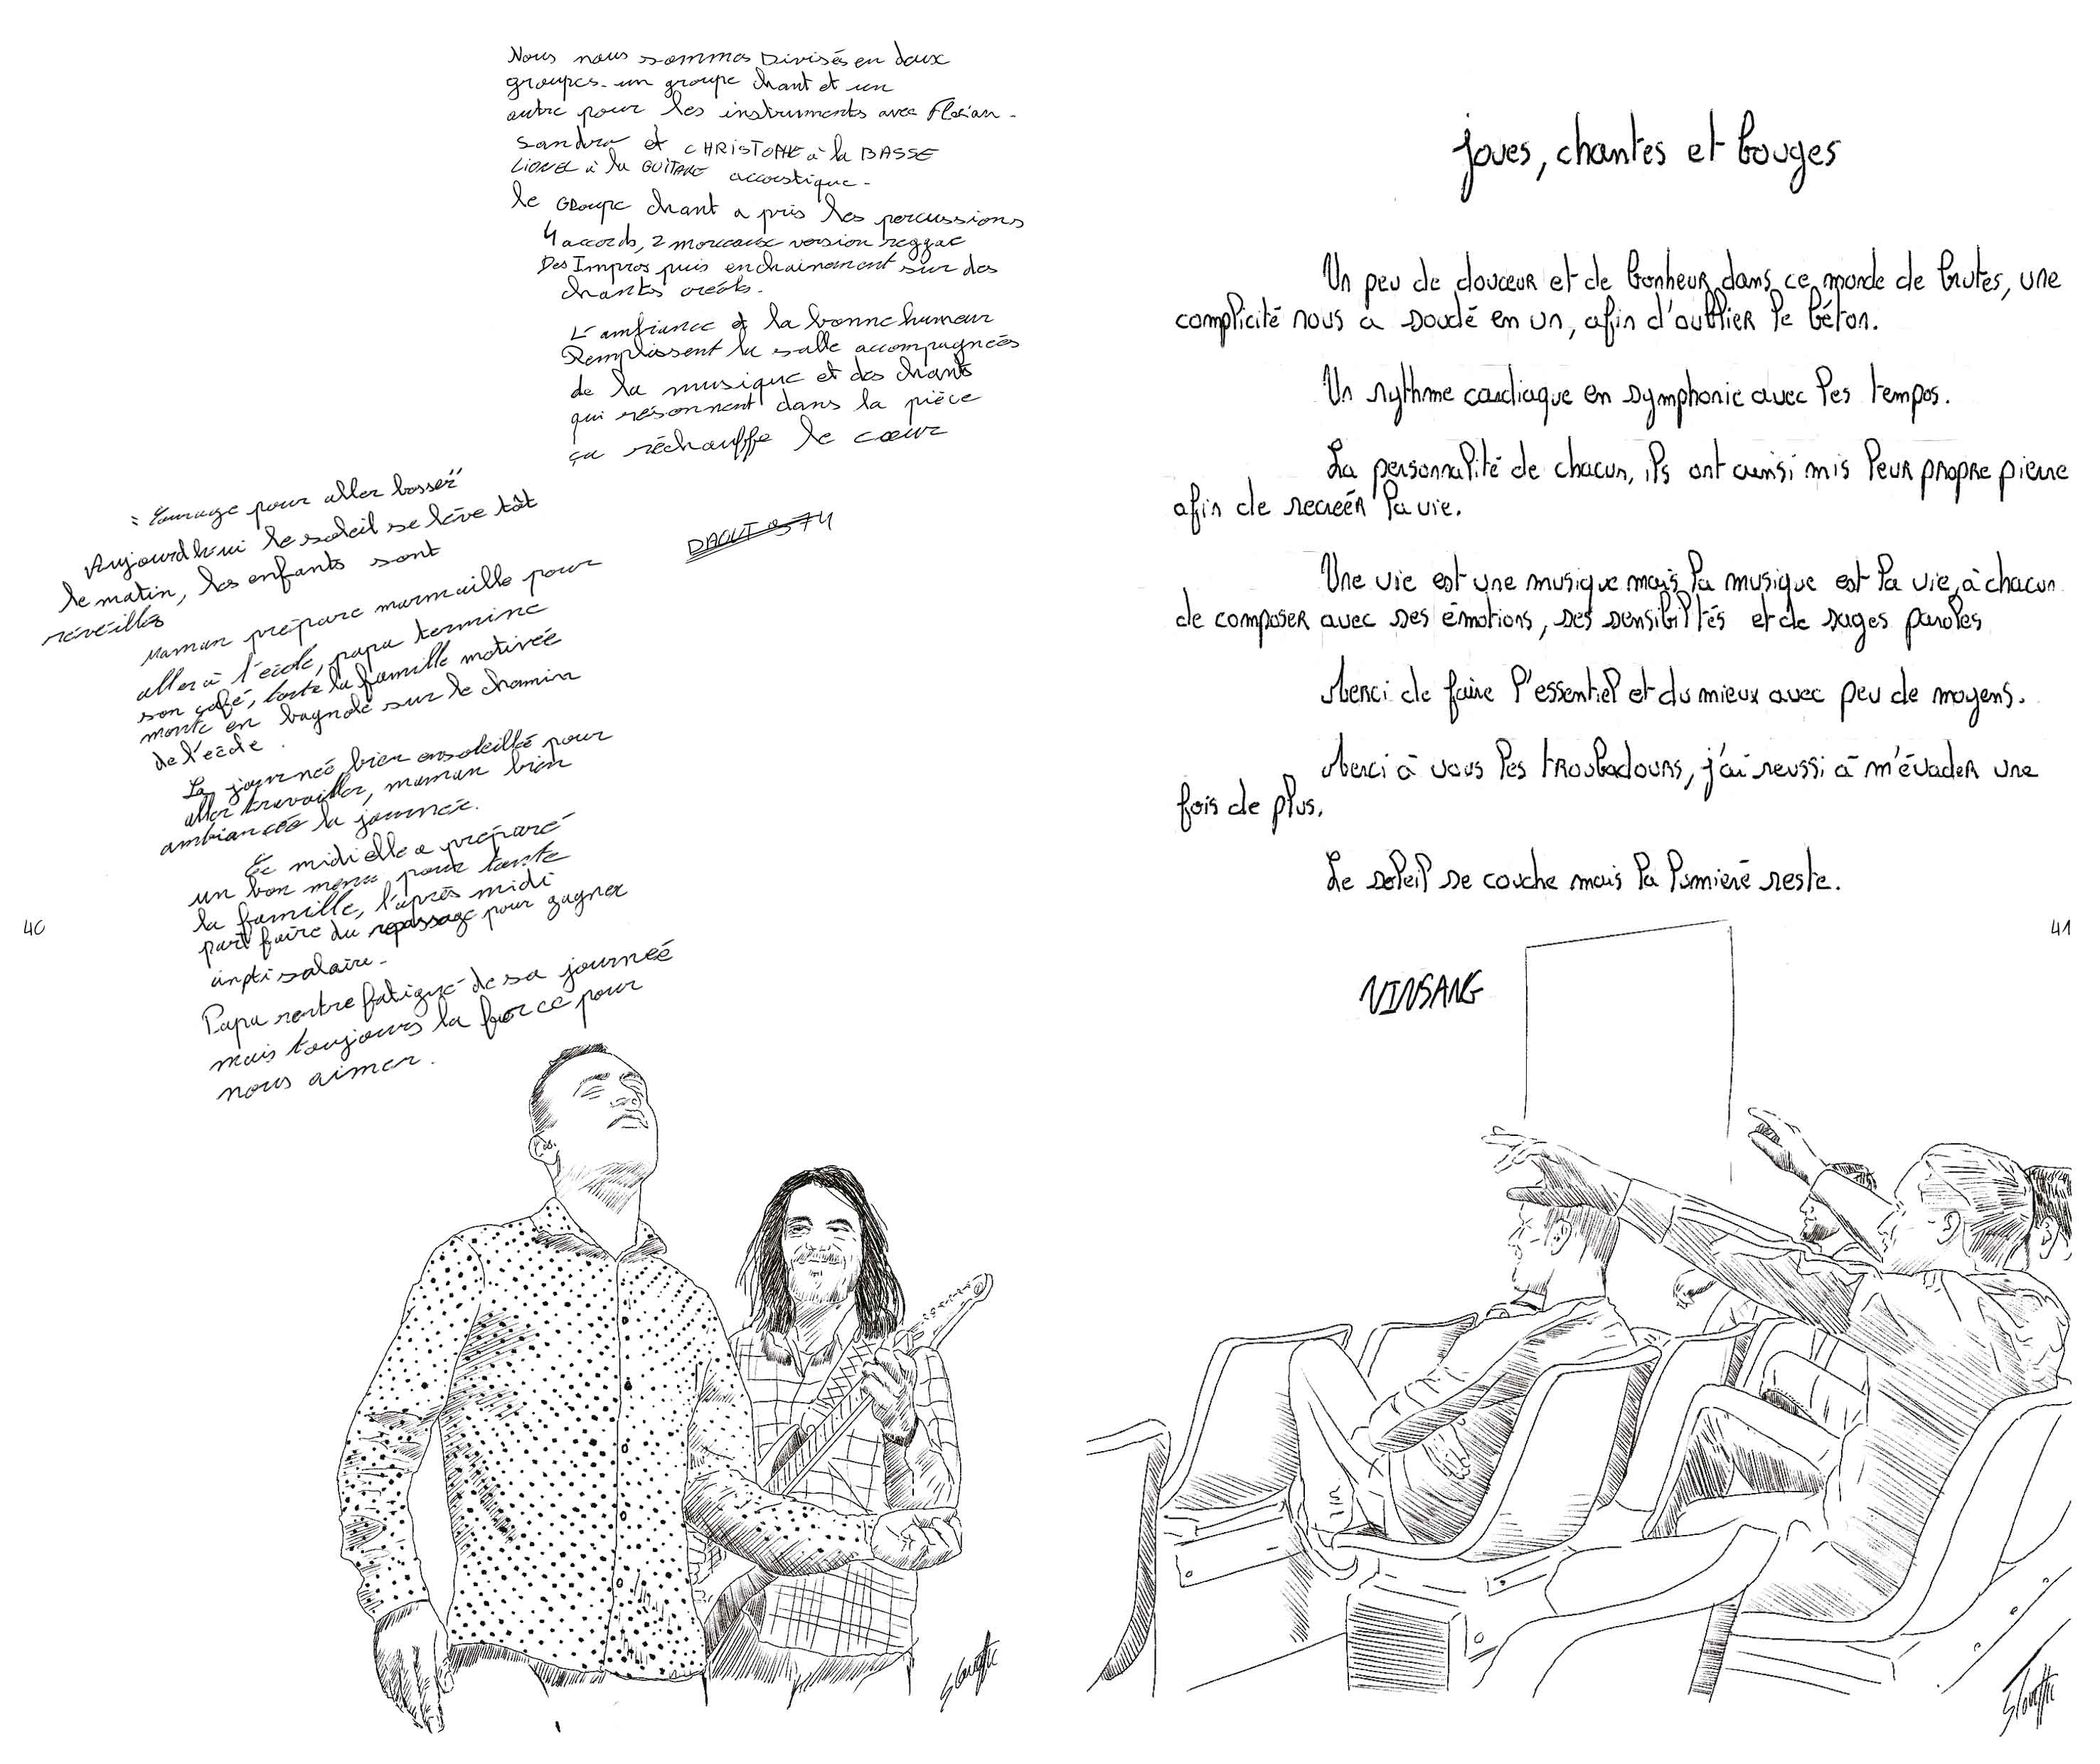 Nous nous sommes Divisés en deux
groupes. un groupe chant et un
autre pour les instruments avec Florian.
Sandra et CHRISTOPHE à la BASSE
LIONEL à la GUITARE accoustique.
le Groupe chant a pris les percussions
4 accords, 2 morceaux version reggae
Des Impros puis enchainement sur des
chants créés.
L'ambiance et la bonne humeur
Remplissent la salle accompagnées
de la musique et des chants
qui résonnent dans la pièce
ça réchauffe le cœur
DAOUT 974
"Courage pour aller bosser"
Aujourd'hui le soleil se lève tôt
le matin, les enfants sont
réveillés
Maman prépare marmaille pour
aller à l'école, papa termine
son café, toute la famille motivée
monte en bagnole sur le chemin
de l'école.
La journée bien ensoleillé pour
aller travailler, maman bien
ambiancée la journée.
Ce midi elle a préparé
un bon menu pour toute
la famille, l'après midi
part faire du repassage pour gagner
un pti salaire.
Papa rentre fatigué de sa journée
mais toujours la force pour
nous aimer.
40
joues, chantes et bouges
Un peu de douceur et de bonheur dans ce monde de brutes, une
complicité nous a soudé en un, afin d'oublier le béton.
Un rythme cardiaque en symphonie avec les tempos.
La personnalité de chacun, ils ont ainsi mis leur propre pierre
afin de recréer la vie.
Une vie est une musique mais la musique est la vie, à chacun
de composer avec ses émotions, ses sensibiltés et de sages paroles
Merci de faire l'essentiel et du mieux avec peu de moyens.
Merci à vous les troubadours, j'ai reussi à m'évader une
fois de plus.
Le soleil se couche mais la lumière reste.
41
VINSANG